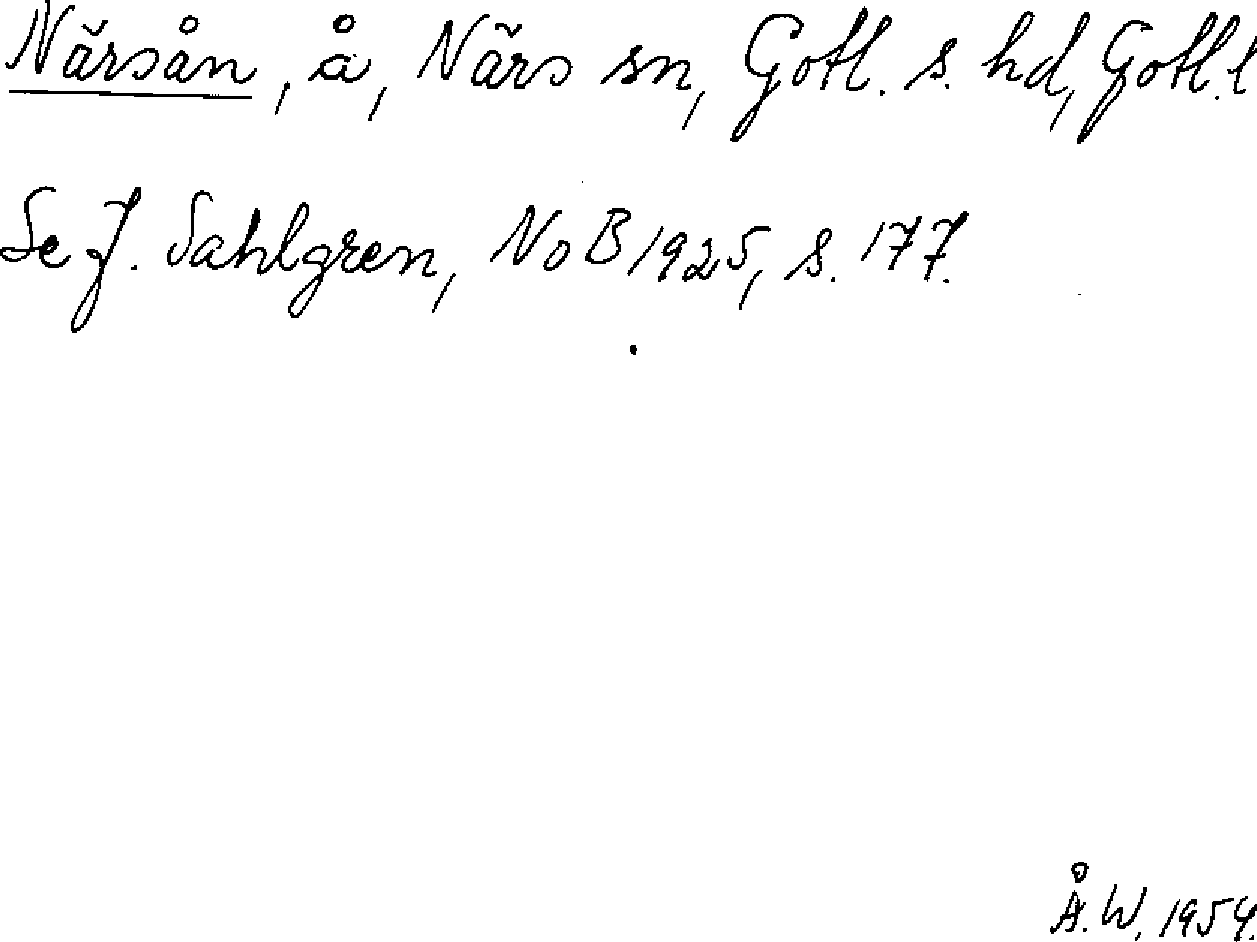 Närsån, å, Närs sn, Gotl. s. hd, Gotl. l
Se J. Sahlgren, NoB 1925, s. 177.
Å.W. 1954.